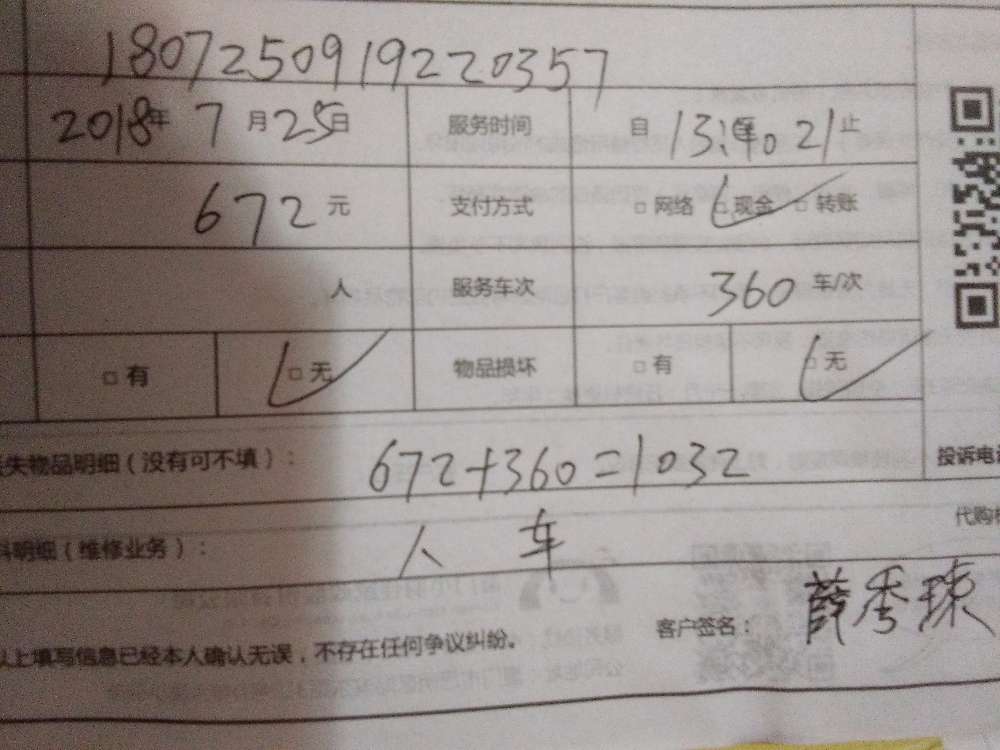 1807250919220357
2018年 7 月 25 日 服务时间 自 13 21 止
672 元 支付方式 □ 网络 □ 现金 □ 转账
人 服务车次 360 车/次
□ 有 □ 无 物品损坏 □ 有 □ 无
失物品明细（没有可不填）： 672+360=1032
投诉电
料明细（维修业务）： 人 车
代购
以上填写信息已经本人确认无误，不存在任何争议纠纷。 客户签名： 薛秀